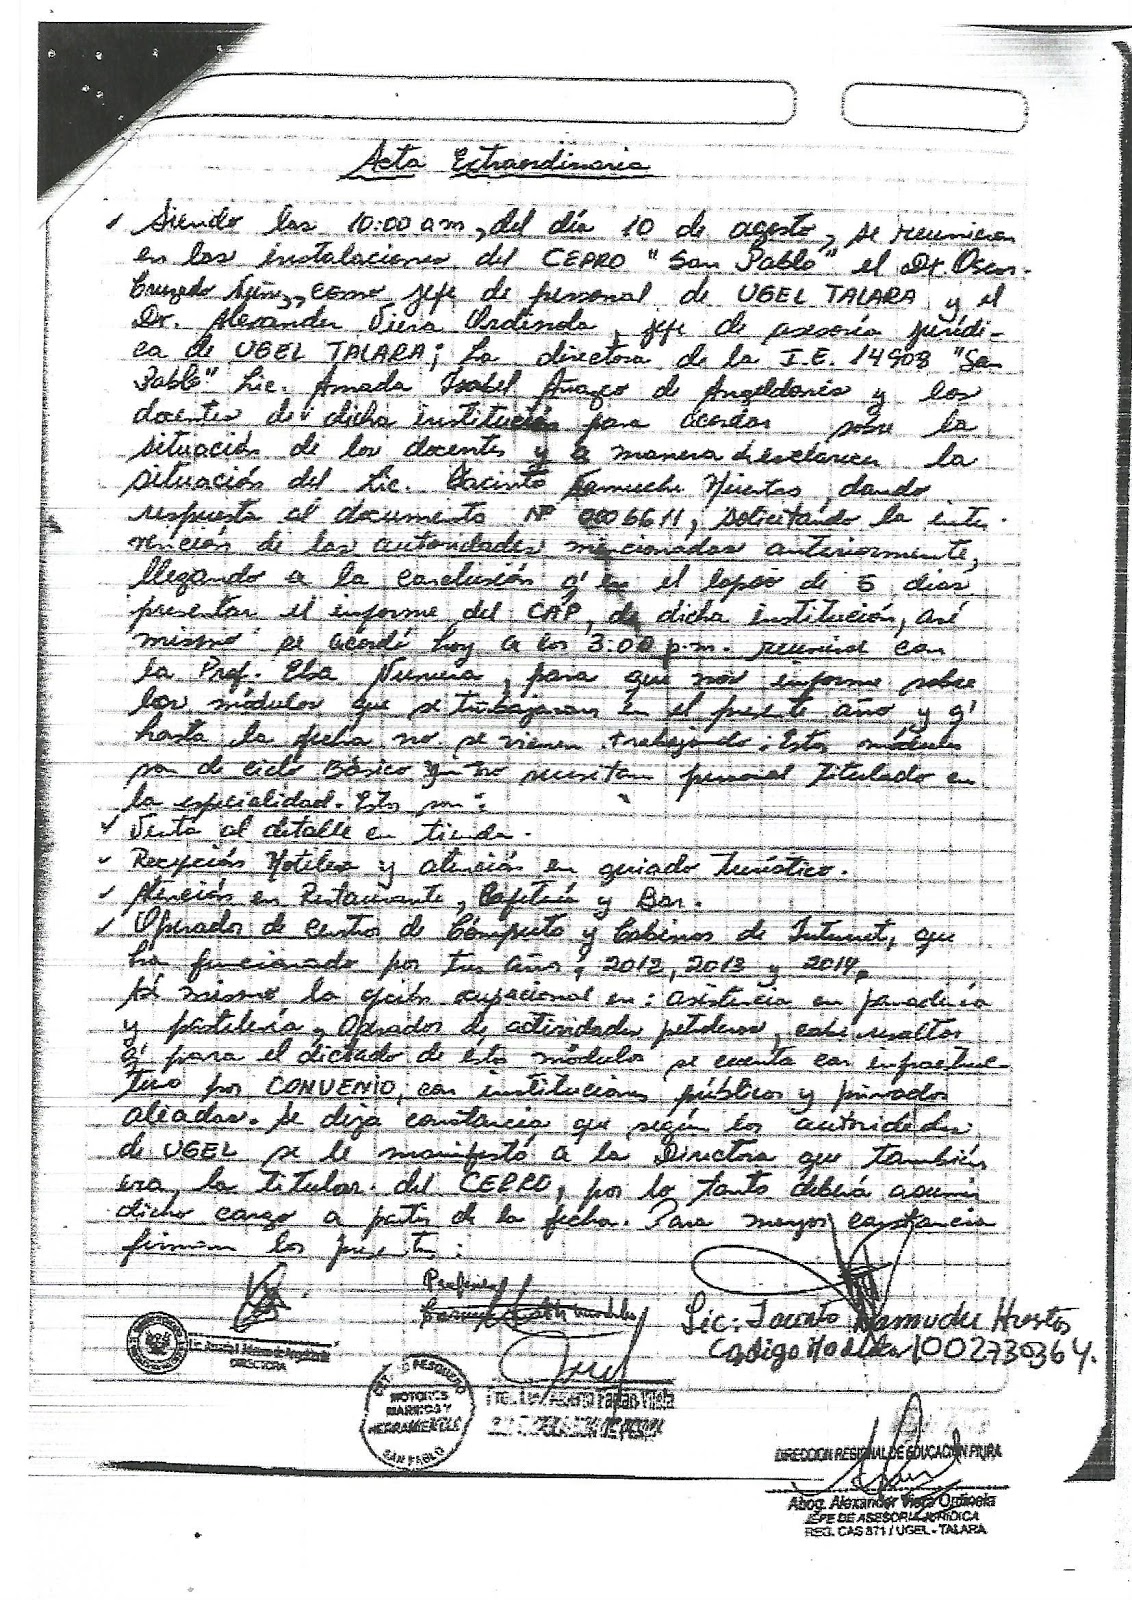 Acta Extraordinaria
Siendo las 10:00 am, del día 10 de agosto, se reunieron
en las instalaciones del CEPRO "San Pablo" el Dr. Oscar
Cruzado Núñez, como jefe de personal de UGEL TALARA y el
Dr. Alexander Viera Ordinola, jefe de asesoría jurídi-
ca de UGEL TALARA; La directora de la I.E. 14908 "San
Pablo" Lic. Amada Isabel de y los
docentes de dicha institución para acordar sobre la
situación de los docentes y a manera de esclarecer la
situación del Lic. Jacinto Namuche Huertas, dando
respuesta al documento Nº 0006611, solicitando la inter-
vención de las autoridades mencionadas anteriormente,
llegando a la conclusión q' en el lapso de 5 días
presentar el informe del CAP, de dicha institución, así
mismo se acordó hoy a las 3:00 p.m. reunirse con
la Prof. Elsa , para que nos informe sobre
los módulos que se trabajaran en el presente año y q'
hasta la fecha no se vienen trabajando. Estos módulos
son de ciclo Básico que no necesitan personal titulado en
la especialidad. Estos son:
✓ Venta al detalle en tienda.
✓ Recepción Hotelera y atención en guiado turístico.
✓ Atención en Restaurante, Cafetería y Bar.
✓ Operador de centros de Cómputo y Cabinas de Internet, que
ha funcionado por tres años, 2012, 2013 y 2014.
Así mismo la opción ocupacional en: asistencia en panadería
y pastelería y Operador de actividades petroleras, cabe resaltar
q' para el dictado de estos módulos se cuenta con infraestruc-
tura por CONVENIO, con instituciones públicas y privadas
aleadas. Se deja constancia que según las autoridades
de UGEL se le manifestó a la Directora que también
era la titular del CEPRO, por lo tanto deberá asumir
dicho cargo a partir de la fecha. Para mayor constancia
firman los presentes:
Lic. Jacinto Namuche Huertas
Codigo Modular 1002730364.
DIRECTORA
PESQUERO
MOTORES
MARINOS Y
HERRAMIENTAS
SAN PABLO
DIRECCION REGIONAL DE EDUCACION PIURA
Abog. Alexander Viera Ordinola
JEFE DE ASESORIA JURIDICA
REG. CAS 871 / UGEL - TALARA